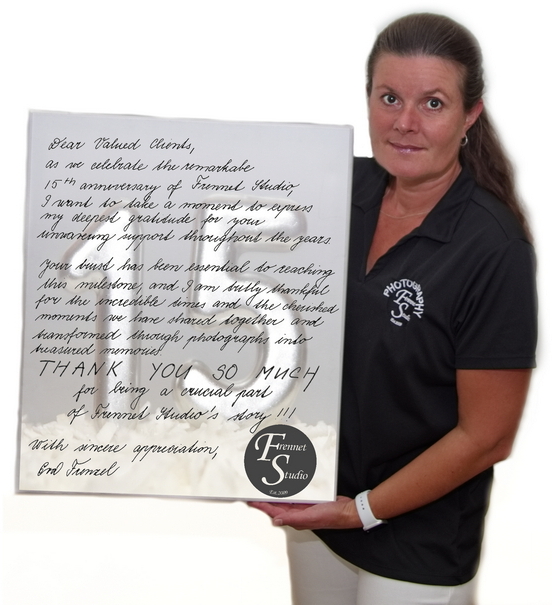 Dear Valued Clients,
as we celebrate the remarkabe
15th anniversary of Frennet Studio,
I want to take a moment to express
my deepest gratitude for your
unwavering support throughout the years.
Your trust has been essential to reaching
this milestone, and I am truly thankful
for the incredible times and the cherished
moments we have shared together and
transformed through photographs into
treasured memories.
THANK YOU SO MUCH
for being a crucial part
of Frennet Studio's story !!!
With sincere appreciation,
Frenzel
Frennet
Studio
Est. 2009
PHOTOGRAPHY
FS